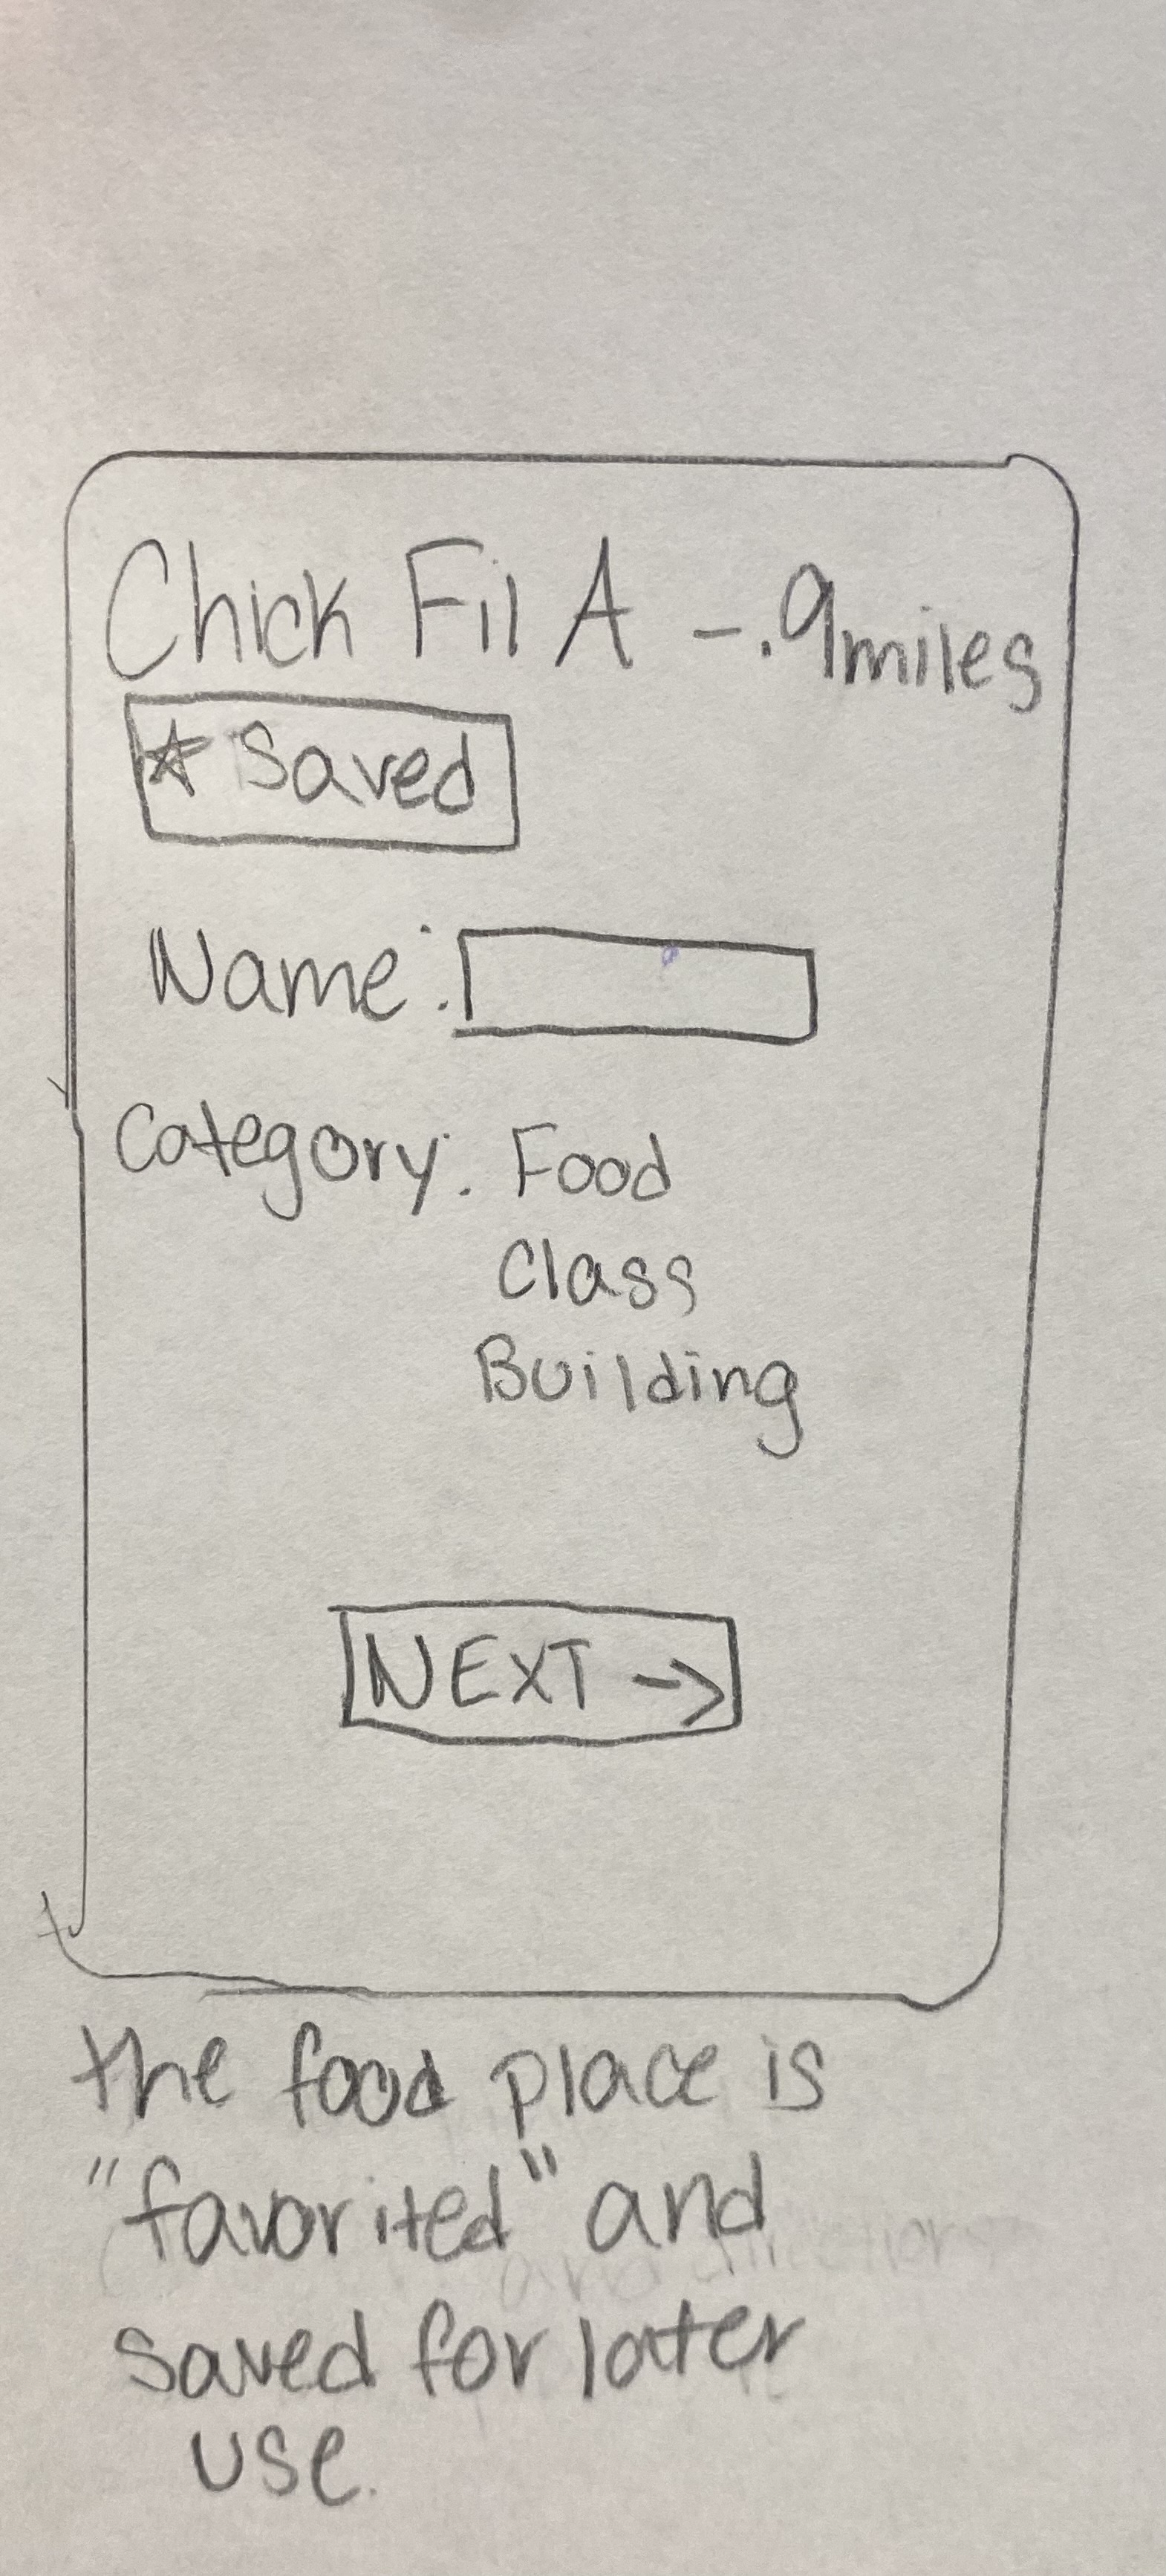 Chick Fil A - .9miles
☆ Saved
Name:
Category: Food
Class
Building
NEXT →
the food place is
"favorited" and
saved for later
use.